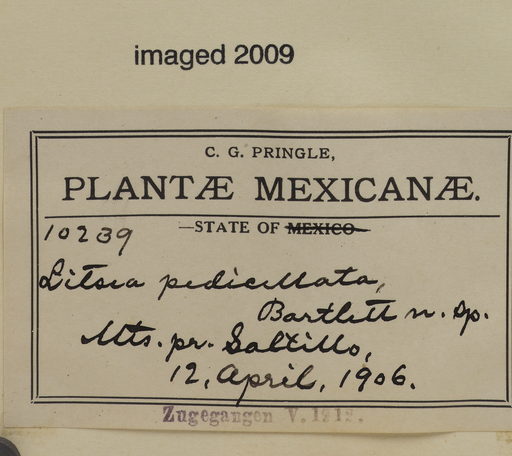 imaged 2009
C. G. PRINGLE,
PLANTÆ MEXICANÆ.
—STATE OF MEXICO
10239
Litsea pedicellata,
Bartlett n. sp.
Mts. pr. Saltillo,
12, April, 1906.
Zugegangen V. 1912.